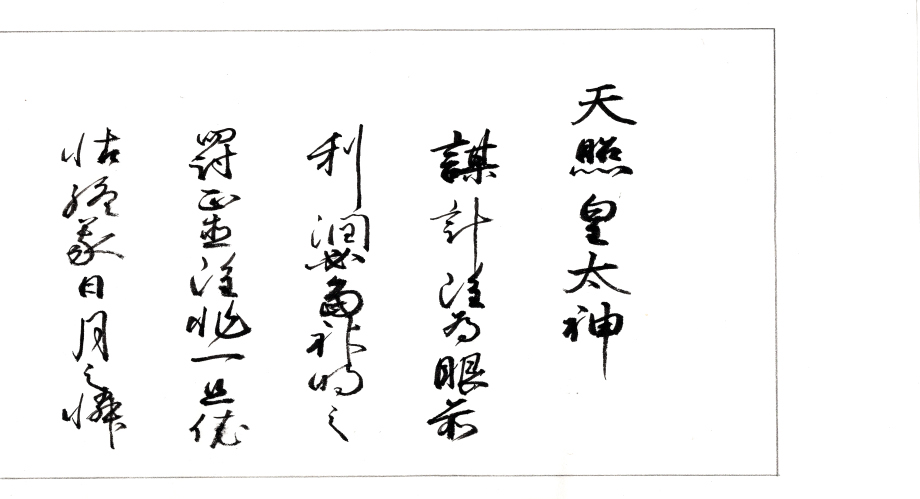 天照皇太神
謀計雖為眼前
利潤必當神明之
罸正直雖非一旦依
怙終蒙日月之憐